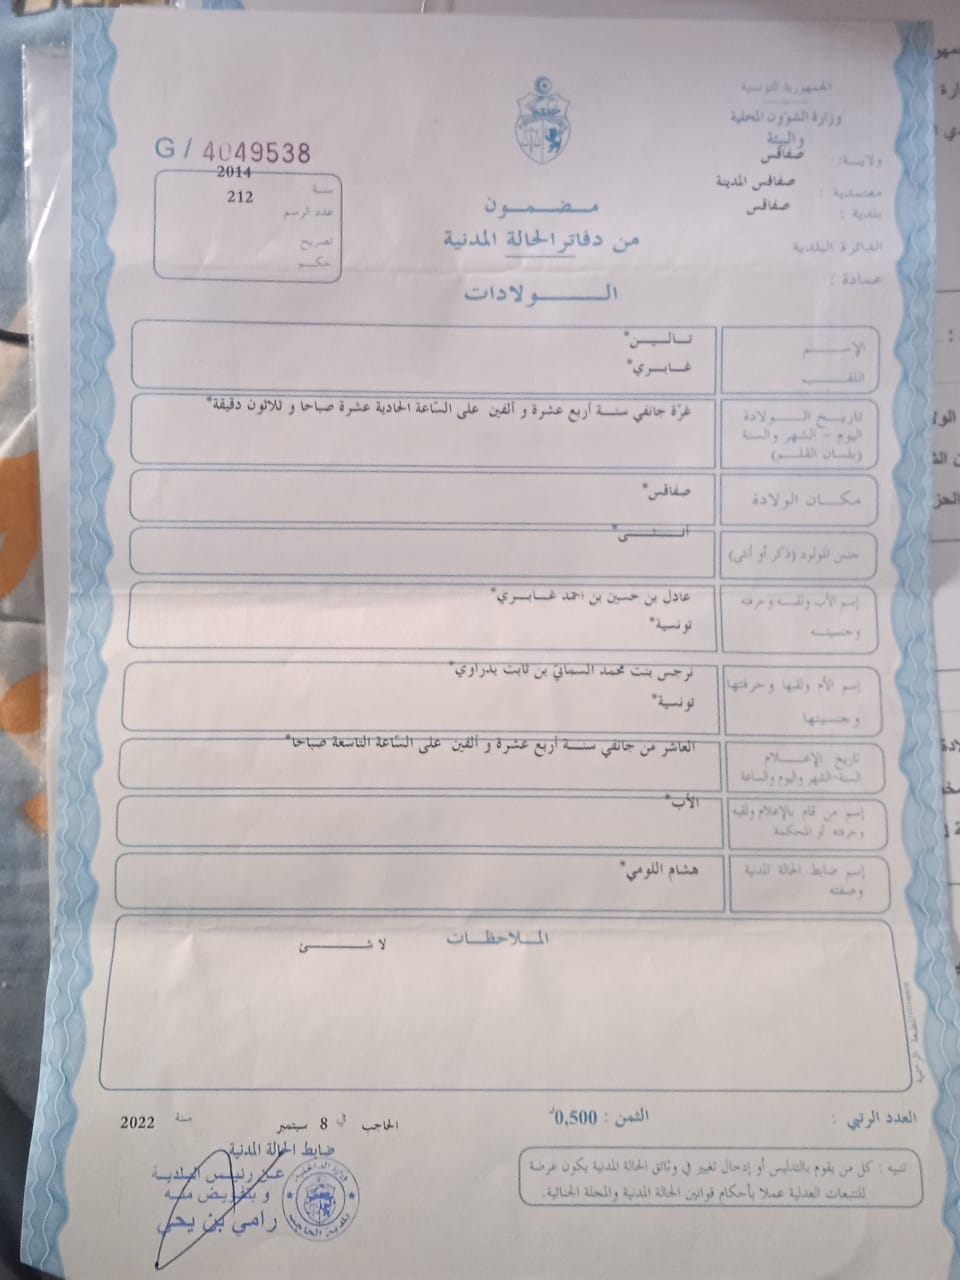 الجمهورية التونسية
وزارة الشؤون المحلية
والبيئة
ولاية : صفاقس
معتمدية : صفاقس المدينة
بلدية : صفاقس
الدائرة البلدية
عمادة :
G / 4049538
سنة 2014
عدد الرسم 212
تصريح
حكم
مضمون
من دفاتر الحالة المدنية
الولادات
الإسم تالين*
اللقب غابري*
تاريخ الولادة
اليوم - الشهر والسنة
(بلسان القلم)
غرّة جانفي سنة أربع عشرة و ألفين على السّاعة الحادية عشرة صباحا و ثلاثون دقيقة*
مكان الولادة صفاقس*
جنس المولود (ذكر أو أنثى) أنثى*
إسم الأب ولقبه وحرفته
وجنسيته
عادل بن حسين بن احمد غابري*
تونسية*
إسم الأم ولقبها وحرفتها
وجنسيتها
نرجس بنت محمد السماتي بن ثابت بدراوي*
تونسية*
تاريخ الإعلام
السنة-الشهر واليوم والساعة
العاشر من جانفي سنة أربع عشرة و ألفين على السّاعة التاسعة صباحا*
إسم من قام بالإعلام ولقبه
وحرفته أو المحكمة
الأب*
إسم ضابط الحالة المدنية
وصفته
هشام اللومي*
الملاحظات
لا شئ
العدد الرتبي :
الثمن : 0,500د
الحاجب في 8 سبتمبر سنة 2022
ضابط الحالة المدنية
عن رئيس البلدية
و بتفويض منه
رامي بن يحي
بلدية الحاجب
تنبيه : كل من يقوم بالتدليس أو إدخال تغيير في وثائق الحالة المدنية يكون عرضة
للتتبعات العدلية عملا بأحكام قوانين الحالة المدنية والمجلة الجنائية.